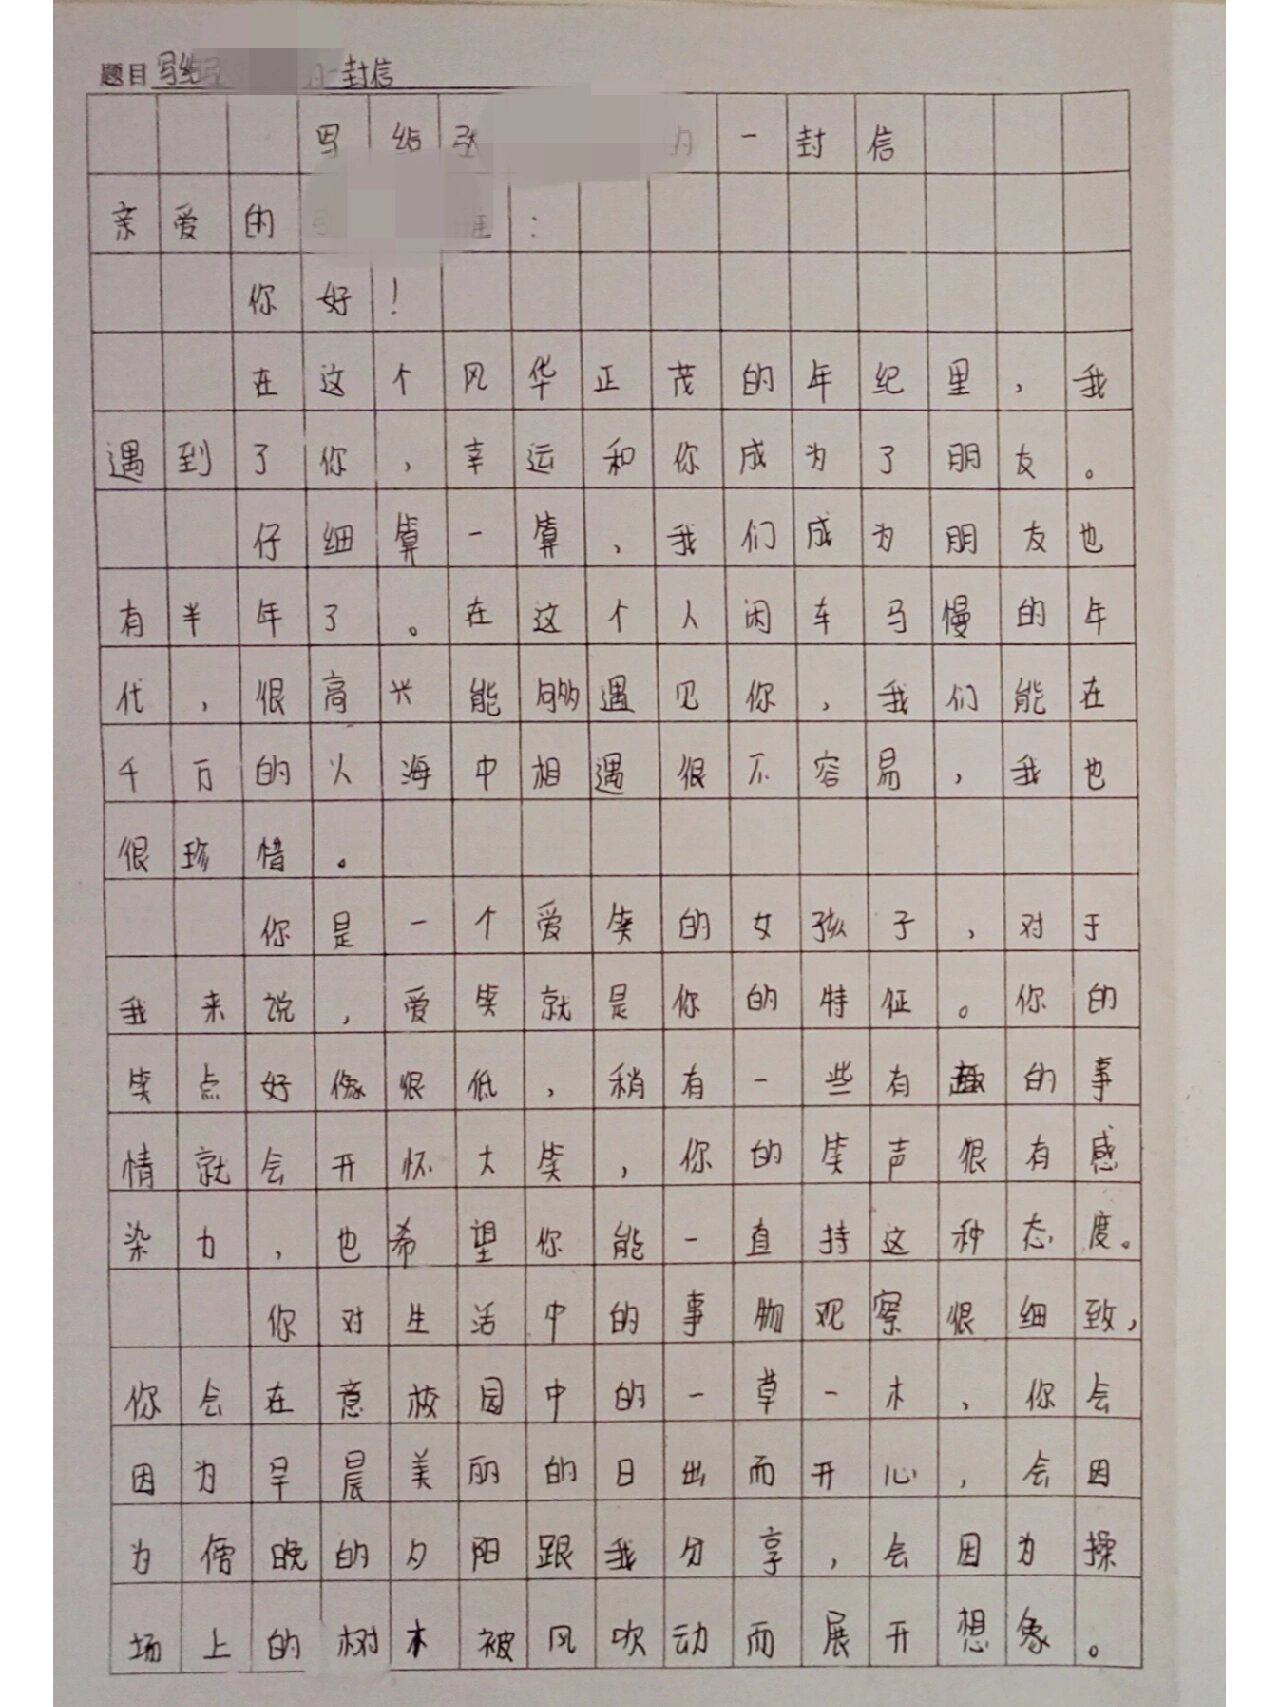 题目 写给 一封信
写给张 的一封信
亲爱的 ：
你好！
在这个风华正茂的年纪里，我
遇到了你，幸运和你成为了朋友。
仔细算一算，我们成为朋友也
有半年了。在这个人闲车马慢的年
代，很高兴能够遇见你，我们能在
千万的人海中相遇很不容易，我也
很珍惜。
你是一个爱笑的女孩子，对于
我来说，爱笑就是你的特征。你的
笑点好像很低，稍有一些有趣的事
情就会开怀大笑，你的笑声很有感
染力，也希望你能一直持这种态度。
你对生活中的事物观察很细致，
你会在意校园中的一草一木，你会
因为早晨美丽的日出而开心，会因
为傍晚的夕阳跟我分享，会因为操
场上的树木被风吹动而展开想象。